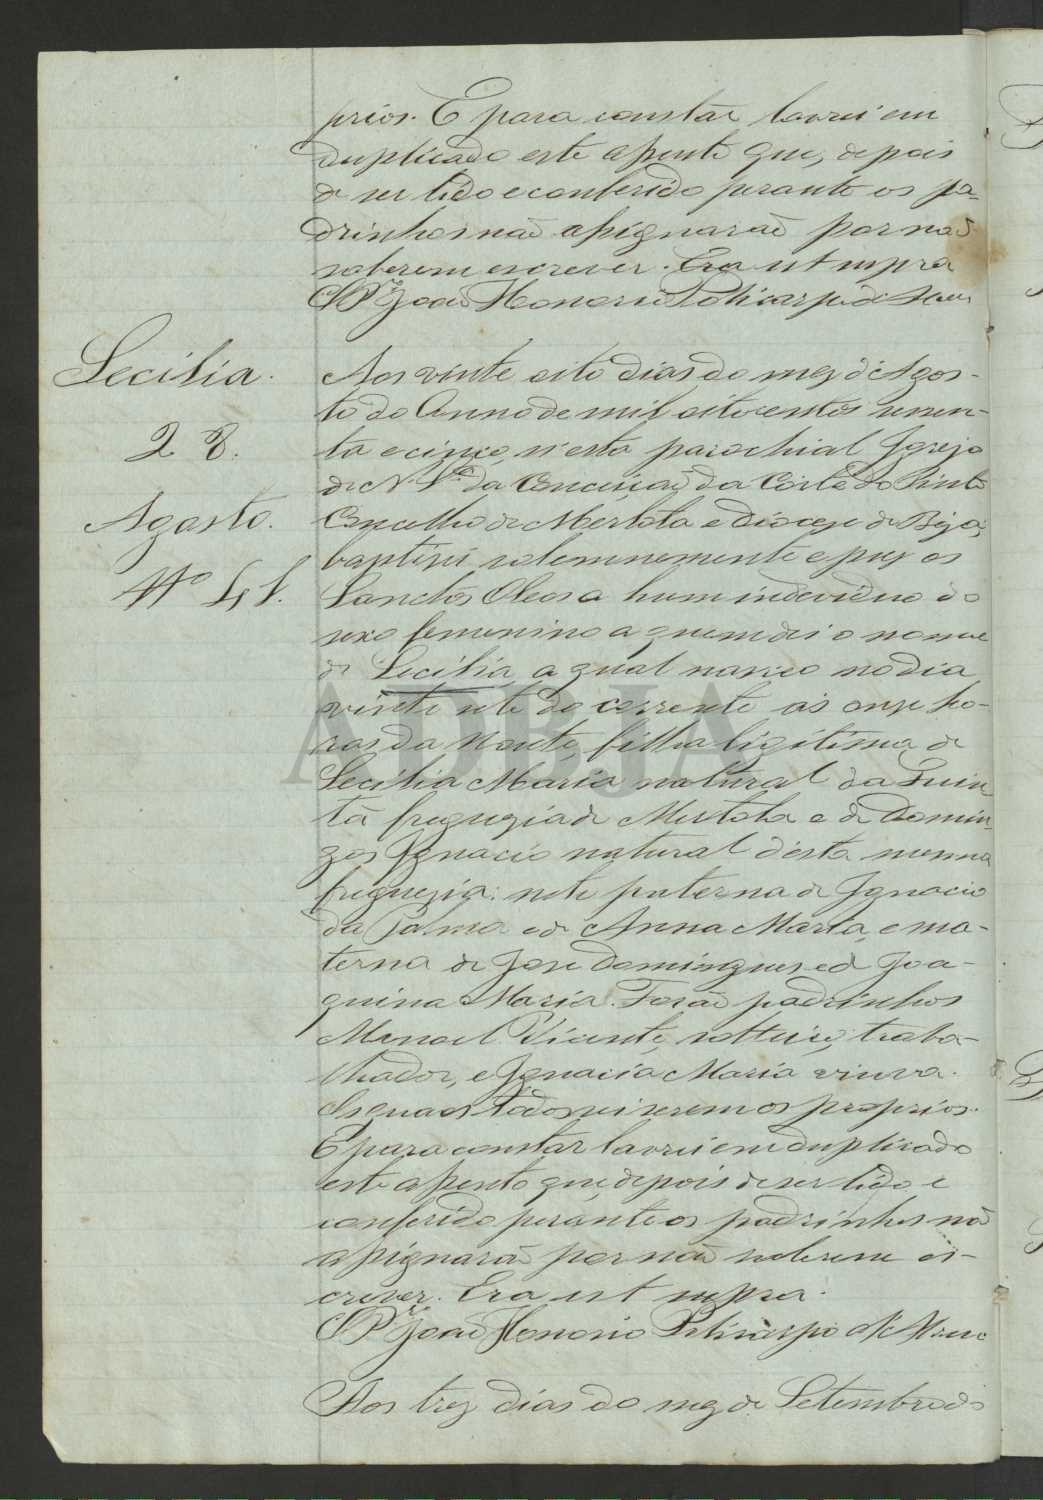 prios. E para constár lavrei em
duplicado este assento que, depois
de ser lido e conferido perante os pa-
drinhos não assignarão por não
saberem escrever. Era ut supra
O Pr. João Honorio Policarpo de
Secilia.
28.
Agosto.
Nº 41.
Aos vinte oito dias do mez de Agos-
to do Anno de mil oitocentos sessen-
ta e cinco, n'esta parochial Igreja
de N. Srª da Conceição da Côrte do Pinto
Concelho de Mertola e diocese de Beja;
baptizei solemnemente e puz os
Sanctos Oleos a hum individuo do
sexo femenino a quem dei o nome
de Secilia, a qual nasceo no dia
vinte sete do corrente ás onze ho-
ras da noute, filha ligitima de
Secilia Maria natural da Quin
tã freguezia de Mertola e de Domin-
gos Ignacio natural d'esta mesma
freguezia: neta paterna de Ignacio
da Palma e de Anna Maria, e ma-
terna de José Domingues e de Joa-
quina Maria. Forão padrinhos
Manoel Vicente, solteiro, traba-
lhador, e Ignacia Maria viuva.
Os quaes todos sei serem os proprios.
E para constar lavrei em duplicado
este assento que, depois de ser lido e
conferido perante os padrinhos não
assignarão por não saberem es-
crever. Era ut supra.
O Pr. João Honorio Policarpo de
Aos trez dias do mez de Setembro do
ADBJA